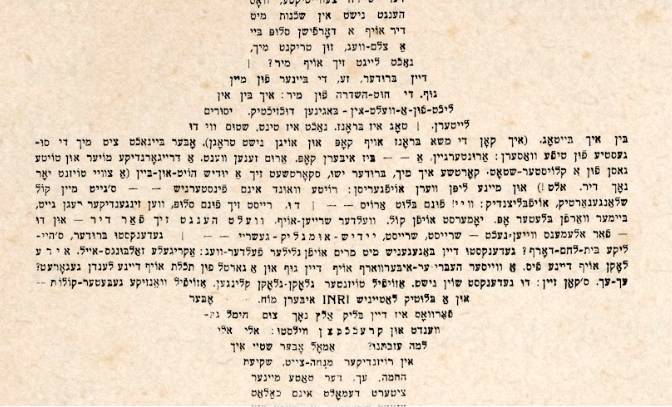 הענגט נישט אין שכנות מיט
דיר אויף א דאָרפישן סלופּ ביי
אַ צלם־וועג, זון טריקנט מיך,
נאַכט לייגט זיך אויף מיר? |
דיין ברודער, זע, די ביינער פון מיין
גוף, די חוט־השדרה פון מיר: איך בין אין
ליכט־פון־אַ־וועלט־צין־באַגינען דורכזיכטיק. יסורים
לייטערן. | טאָג איז בראָנז, נאַכט איז טינט, שטום ווי דו
בין איך בייטאָג. (איך קאָן די משא בראָנז אויף קאָפּ און אויגן נישט טראָגן). אָבער ביינאַכט ציט מיך די סו־
געסטיע פון טיפע וואַסערן: אַרונטערגיין. אַ — — ביז איבערן קאָפּ. אַרום זענען ווענט. אַ דרייגראַנדיקע מויער און טויטע
גאַסן פון אַ קלויסטער־שטאָט. קאַרטשע איך מיך, ברודער ישו, סקאָרטשעט זיך אַ יודיש הויט־און־ביין (אַ צוויי טויזנט יאָר
נאָך דיר. אַלט!) און מיינע ליפּן ווערן אויפגעריסן: רויטע וואונד אינם פינסטערניש — — ס'גייט מיין קול
שלאַנגענאַרטיק, אויפבליצנדיק: וויי! פונם בלוט אַרויס — — | דו, רייסט זיך פונם סלופּ, ווען זינגענדיקער רעגן גייט,
ביימער וואַרפן בלעטער אָפּ. יאָמערסט אויפן קול. וועלדער שרייען־אויף. וועלט הענגט זיך פאַר דיר — און דו
— פאַר אַלעמענס וויי־געלט — שרייסט, שרייסט, יידיש־אומגליק־געשריי — — | געדענקסטו ברודער, ס'היי־
ליקע בית־לחם־דאָרף? געדענקסטו דיין באַגעגעניש מיט מרים אויפן גלילער פעלדער־וועג: אַקריגעלע זאַלבונגס־אייל. אירע
לאָקן אויף דיינע פיס. אַ ווייסער העברי־ער־איבערוואורף אויף דיין גוף און אַ גאַרטל פון תכלת אויף דיינע לענדן געגאָרעט?
עך־עך. ס'קאָן זיין: דו געדענקסט שוין נישט. אַזויפיל טויזנטער גלאָקן־גלאָקן קלינגען. אַזויפיל וואַנזיקע געבעטער־קולות —
און אַ בלוטיק לאַטייניש INRI איבערן מוח. — אָבער
פאַרוואָס איז דיין בליק אַלץ נאָך צום הימל גע־
ווענדט און קרעכצן ווילסטו: אלי אלי
למה עזבתני? אַמאָל אָבער שטיי איך
אין רויזנדיקער מנחה־צייט, שקיעת
החמה, עך, דער טאַטע מיינער
ציטערט דעמאָלט אינם כאַלאַט